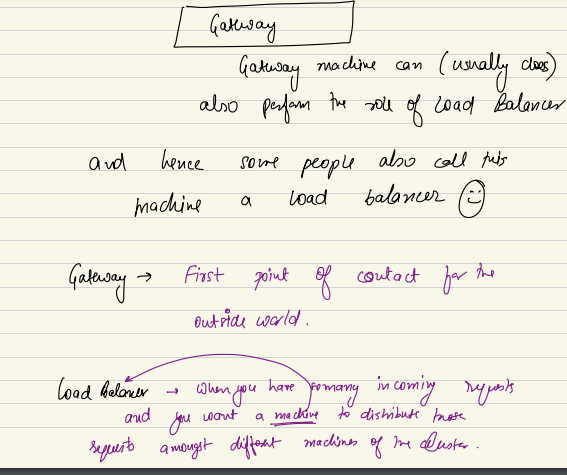 Gateway
Gateway machine can (usually does)
also perform the role of Load Balancer
and hence some people also call this
machine a load balancer
Gateway → First point of contact for the
outside world.
Load Balancer → When you have so many incoming requests
and you want a machine to distribute those
requests amongst different machines of the cluster.